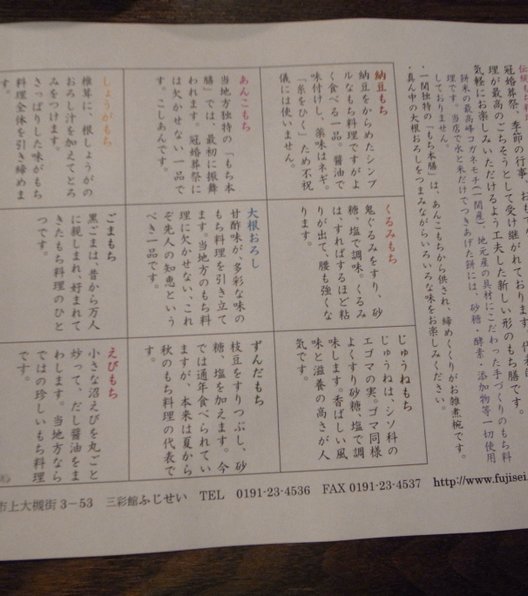 冠婚葬祭、季節の行事、おも
理が最高のごちそうとして受け継がれております。代表的
気軽にお楽しみいただけるよう工夫した新しい形のもち膳です。
餅米の最高峰コガネモチ(一関産)、地元産の具材にこだわった手づくりのもち料
理です。当店で水と米だけでつきあげた餅には、砂糖・酵素・添加物等一切使用
しておりません。
・一関独特の「もち本膳」は、あんこもちから供され、締めくくりがお雑煮椀です。
・真ん中の大根おろしをつまみながらいろいろな味をお楽しみください。
納豆もち
納豆をからめたシンプ
ルなもち料理ですがよ
く食べる一品。醤油で
味付けし、薬味はネギ。
「糸をひく」ため不祝
儀には使いません。
くるみもち
鬼ぐるみをすり、砂
糖、塩で調味。くるみ
は、すればするほど粘
りが出て、腰も強くな
ります。
じゅうねもち
じゅうねは、シソ科の
エゴマの実。ゴマ同様
よくすり砂糖、塩で調
味します。香ばしい風
味と滋養の高さが人
気です。
あんこもち
当地方独特の「もち本
膳」では、最初に振舞
われます。冠婚葬祭に
は欠かせない一品で
す。こしあんです。
大根おろし
甘酢味が、多彩な味の
もち料理を引き立て
ます。当地方のもち料
理に欠かせない、これ
ぞ先人の知恵という
べき一品です。
ずんだもち
枝豆をすりつぶし、砂
糖、塩を加えます。今
では通年食べられてい
ますが、本来は夏から
秋のもち料理の代表で
す。
しょうがもち
椎茸に、根しょうがの
おろし汁を加えてとろ
みをつけます。
さっぱりした味がもち
料理全体を引き締めま
す。
ごまもち
黒ごまは、昔から万人
に親しまれ、好まれて
きたもち料理のひと
つです。
えびもち
小さな沼えびを丸ごと
炒って、だし醤油をま
わします。当地方なら
ではの珍しいもち料理
です。
市上大槻街3−53 三彩館ふじせい TEL 0191-23-4536 FAX 0191-23-4537 http://www.fujisei.